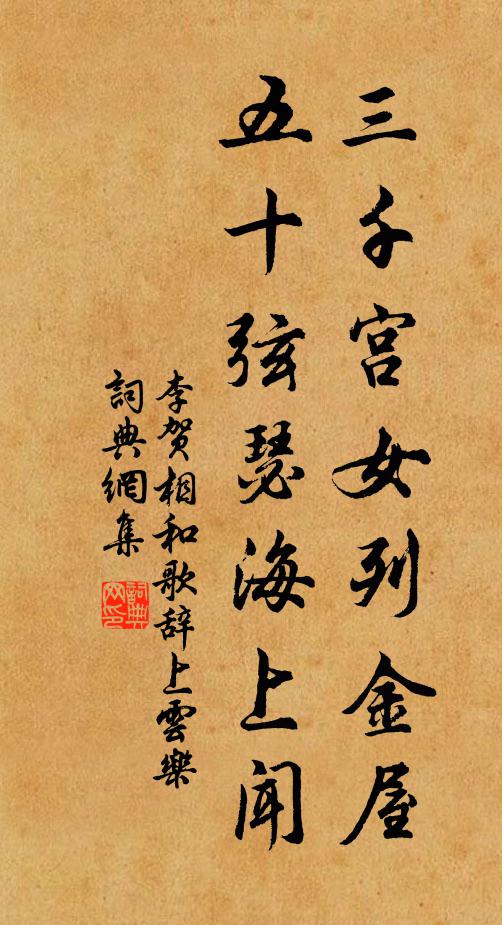 三千宫女列金屋
五十弦瑟海上闻
李贺相和歌辞上雲樂
詞典網集
詞典網印